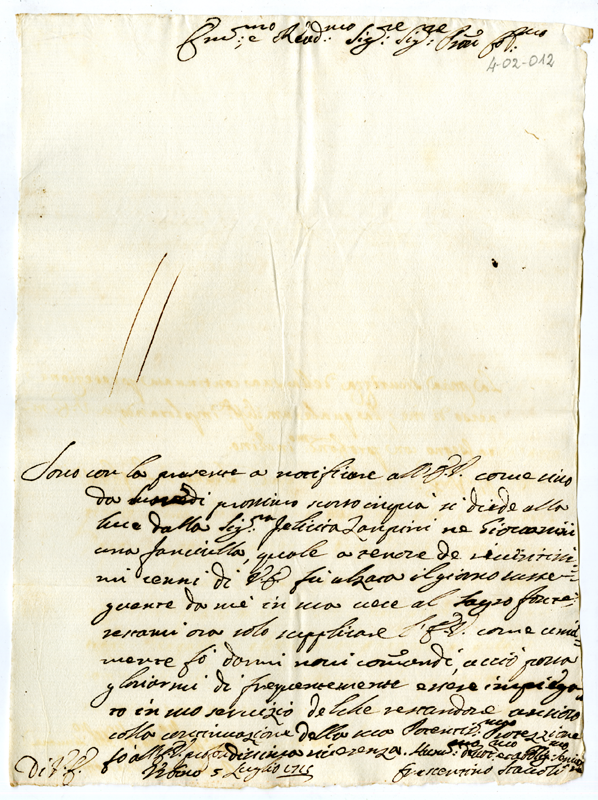 Em.mo e Rev.d:mo Sig.re Sig.re Pron Col.mo
4-02-012
Sono con la presente a notificare all'E.V. come sino
da prossimo scorso in qua si diede alla
luce dalla Sig.ra Felicita Zanpini ne Giovannini
una fanciulla, quale a tenore de
mi cenni di V.E. fù alzata il giorno susse-
guente da me in sua vece al Sagro fonte,
restami ora solo supplicare l'E.V. come umil
mente fò darmi novi com̄andi, acciò possa
gloriarmi di frequentemente essere impiega
to in suo servizio del che restandone ansioso
colla continuazione della sua Potentis.ma Protezzione
fò all'E.V. profondissima riverenza.
Di V.E. Urbino 5 Luglio 1715